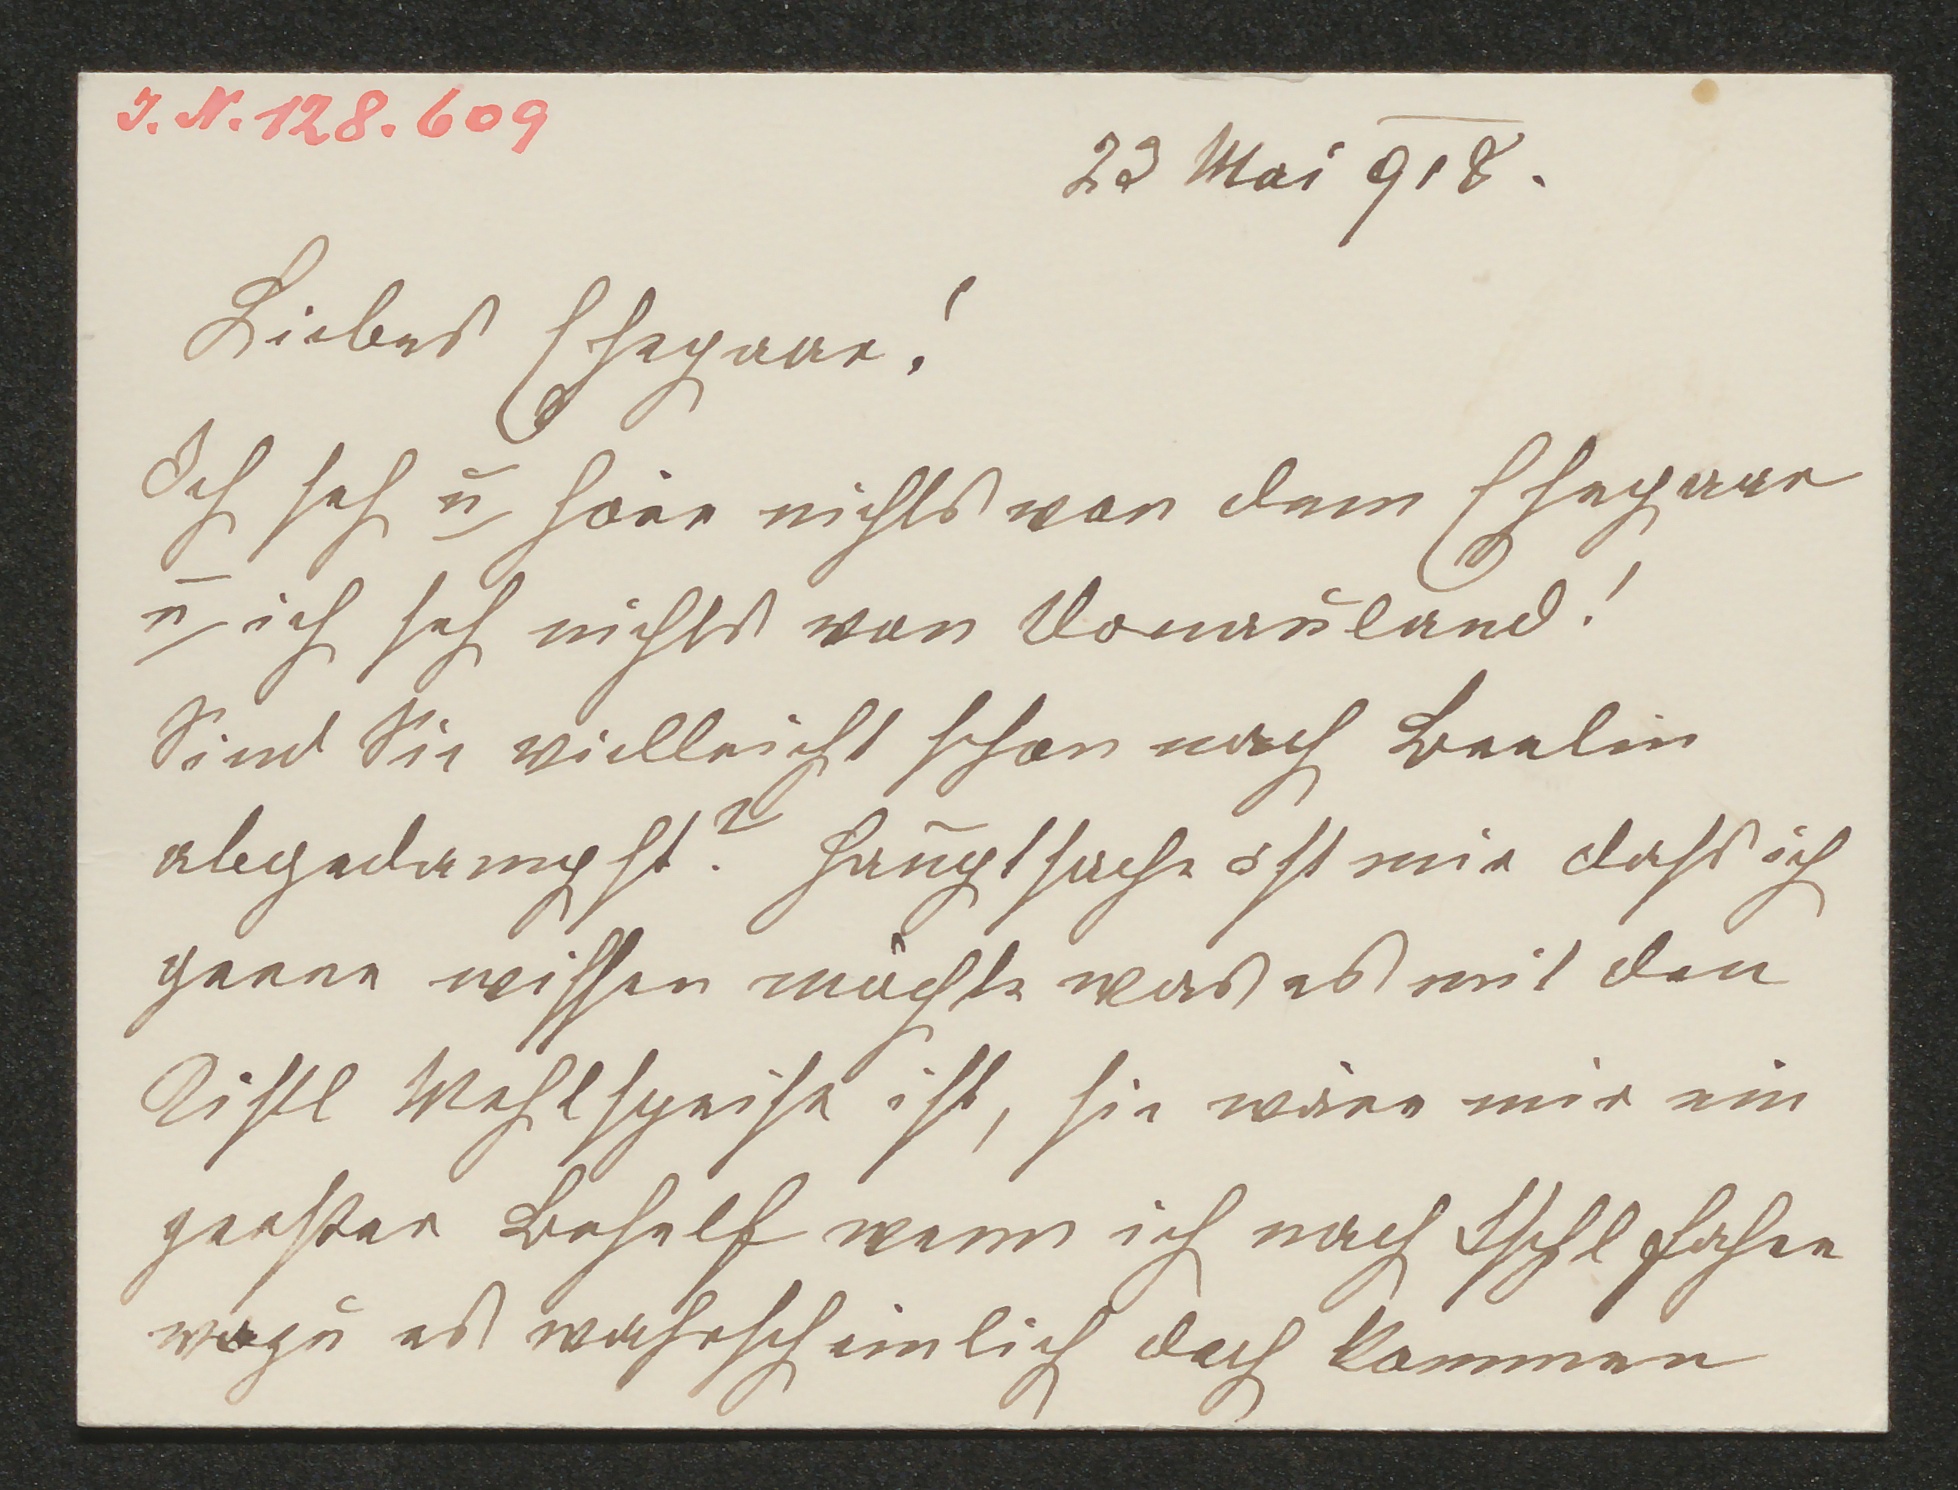 I. N. 128.609
23 Mai 918.
Liebes Ehepaar!
Ich seh u höre nichts von dem Ehepaar
u ich seh nichts von Donauland!
Sind Sie vielleicht schon nach Berlin
abgedampft? Hauptsache ist mir daß ich
gerne wissen möchte was es mit den
Kistl Mehlspeise ist, sie wäre mir ein
großer Behelf wenn ich nach Ischl fahre
wozu es wahrscheinlich doch kommen